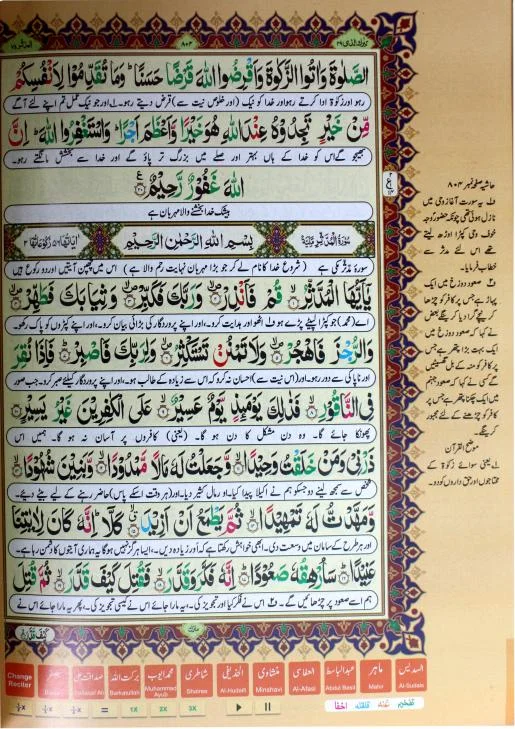 ۸۰۴
الصَّلٰوةَ وَاٰتُوا الزَّكٰوةَ وَاَقْرِضُوا اللّٰهَ قَرْضًا حَسَنًا ؕ وَمَا تُقَدِّمُوْا لِاَنْفُسِكُمْ
رہو اور زکوٰۃ ادا کرتے رہو اور خدا کو نیک (اور خلوص نیت سے) قرض دیتے رہو۔ اور جو نیک عمل تم اپنے لئے آگے
مِّنْ خَيْرٍ تَجِدُوْهُ عِنْدَ اللّٰهِ هُوَ خَيْرًا وَّاَعْظَمَ اَجْرًا ؕ وَاسْتَغْفِرُوا اللّٰهَ ؕ اِنَّ
بھیجو گے اس کو خدا کے ہاں بہتر اور صلے میں بزرگ تر پاؤ گے اور خدا سے بخشش مانگتے رہو۔
اللّٰهَ غَفُوْرٌ رَّحِيْمٌ ۝
بیشک خدا بخشنے والا مہربان ہے
اٰیاتُهَا ۵۶ رُكُوْعَاتُهَا ۲ بِسْمِ اللّٰهِ الرَّحْمٰنِ الرَّحِيْمِ سُوْرَةُ الْمُدَّثِّرِ مَكِّيَّةٌ
سورۂ مدثر مکی ہے (شروع خدا کا نام لے کر جو بڑا مہربان نہایت رحم والا ہے) اس میں چھپن آیتیں اور دو رکوع ہیں
يٰۤاَيُّهَا الْمُدَّثِّرُ ۝ قُمْ فَاَنْذِرْ ۝ وَرَبَّكَ فَكَبِّرْ ۝ وَثِيَابَكَ فَطَهِّرْ ۝
اے (محمد) جو کپڑا لپیٹے پڑے ہو اٹھو اور ہدایت کرو۔، اور اپنے پروردگار کی بڑائی بیان کرو۔، اور اپنے کپڑوں کو پاک رکھو۔
وَالرُّجْزَ فَاهْجُرْ ۝ وَلَا تَمْنُنْ تَسْتَكْثِرُ ۝ وَلِرَبِّكَ فَاصْبِرْ ۝ فَاِذَا نُقِرَ
اور ناپاکی سے دور رہو۔، اور (اس نیت سے) احسان نہ کرو کہ اس سے زیادہ کے طالب ہو۔، اور اپنے پروردگار کیلئے صبر کرو۔ جب صور
فِى النَّاقُوْرِ ۝ فَذٰلِكَ يَوْمَئِذٍ يَّوْمٌ عَسِيْرٌ ۝ عَلَى الْكٰفِرِيْنَ غَيْرُ يَسِيْرٍ ۝
پھونکا جائے گا۔ وہ دن مشکل کا دن ہو گا۔ (یعنی) کافروں پر آسان نہ ہو گا۔ ہمیں اس
ذَرْنِيْ وَمَنْ خَلَقْتُ وَحِيْدًا ۝ وَّجَعَلْتُ لَهٗ مَالًا مَّمْدُوْدًا ۝ وَّبَنِيْنَ شُهُوْدًا ۝
شخص سے سمجھ لینے دو جسکو ہم نے اکیلا پیدا کیا۔ اور مال کثیر دیا۔، اور (ہر وقت اسکے پاس) حاضر رہنے کے لیے بیٹے دیئے۔
وَّمَهَّدْتُّ لَهٗ تَمْهِيْدًا ۝ ثُمَّ يَطْمَعُ اَنْ اَزِيْدَ ۝ كَلَّا ؕ اِنَّهٗ كَانَ لِاٰيٰتِنَا
اور ہر طرح کے سامان میں وسعت دی۔ ابھی خواہش رکھتا ہے کہ اور زیادہ دیں۔، ایسا ہرگز نہیں ہوگا یہ ہماری آیتوں کا دشمن رہا ہے۔
عَنِيْدًا ۝ سَاُرْهِقُهٗ صَعُوْدًا ۝ اِنَّهٗ فَكَّرَ وَقَدَّرَ ۝ فَقُتِلَ كَيْفَ قَدَّرَ ۝ ثُمَّ قُتِلَ
ہم اسے صعود پر چڑھائیں گے۔ اس نے فکر کیا اور تجویز کی۔، یہ مارا جائے اس نے کیسی تجویز کی۔، پھر یہ مارا جائے اس نے
كَيْفَ قَدَّرَ
حاشیہ صفحہ نمبر ۸۰۴
یہ سورت آغاز وحی میں
نازل ہوئی تھی چونکہ حضور وجہ
خوف وحی کپڑا اوڑھ لیتے
تھے اس لئے مدثر سے
خطاب فرمایا۔
صعود دوزخ میں ایک
پہاڑ ہے جس پر کافر کو چڑھا
کر نیچے گرا دیا کریں گے بعض
نے کہا کہ صعود دوزخ میں
ایک بہت بڑا پتھر ہے جس
پر کافر کو منہ کے بل گھسیٹیں
گے کسی نے کہا کہ صعود جہنم
میں ایک چکنا پتھر ہے جس پر
کافر کو چڑھنے کے لئے مجبور
کرینگے۔
موضح القرآن
یعنی سوائے زکوٰۃ کے
محتاجوں اور حق داروں کو دو۔
Change Reciter
صداقت علی
برکت اللہ Barkatullah
محمد ایوب Muhammad Ayub
شاطری Shatree
الحذیفی Al-Hudaifi
منشاوی Minshavi
العفاسی Al-Afasi
عبدالباسط Abdul Basit
ماہر Maher
السدیس Al-Sudais
= 1X 2X 3X
تفخیم غنہ قلقلہ اخفا